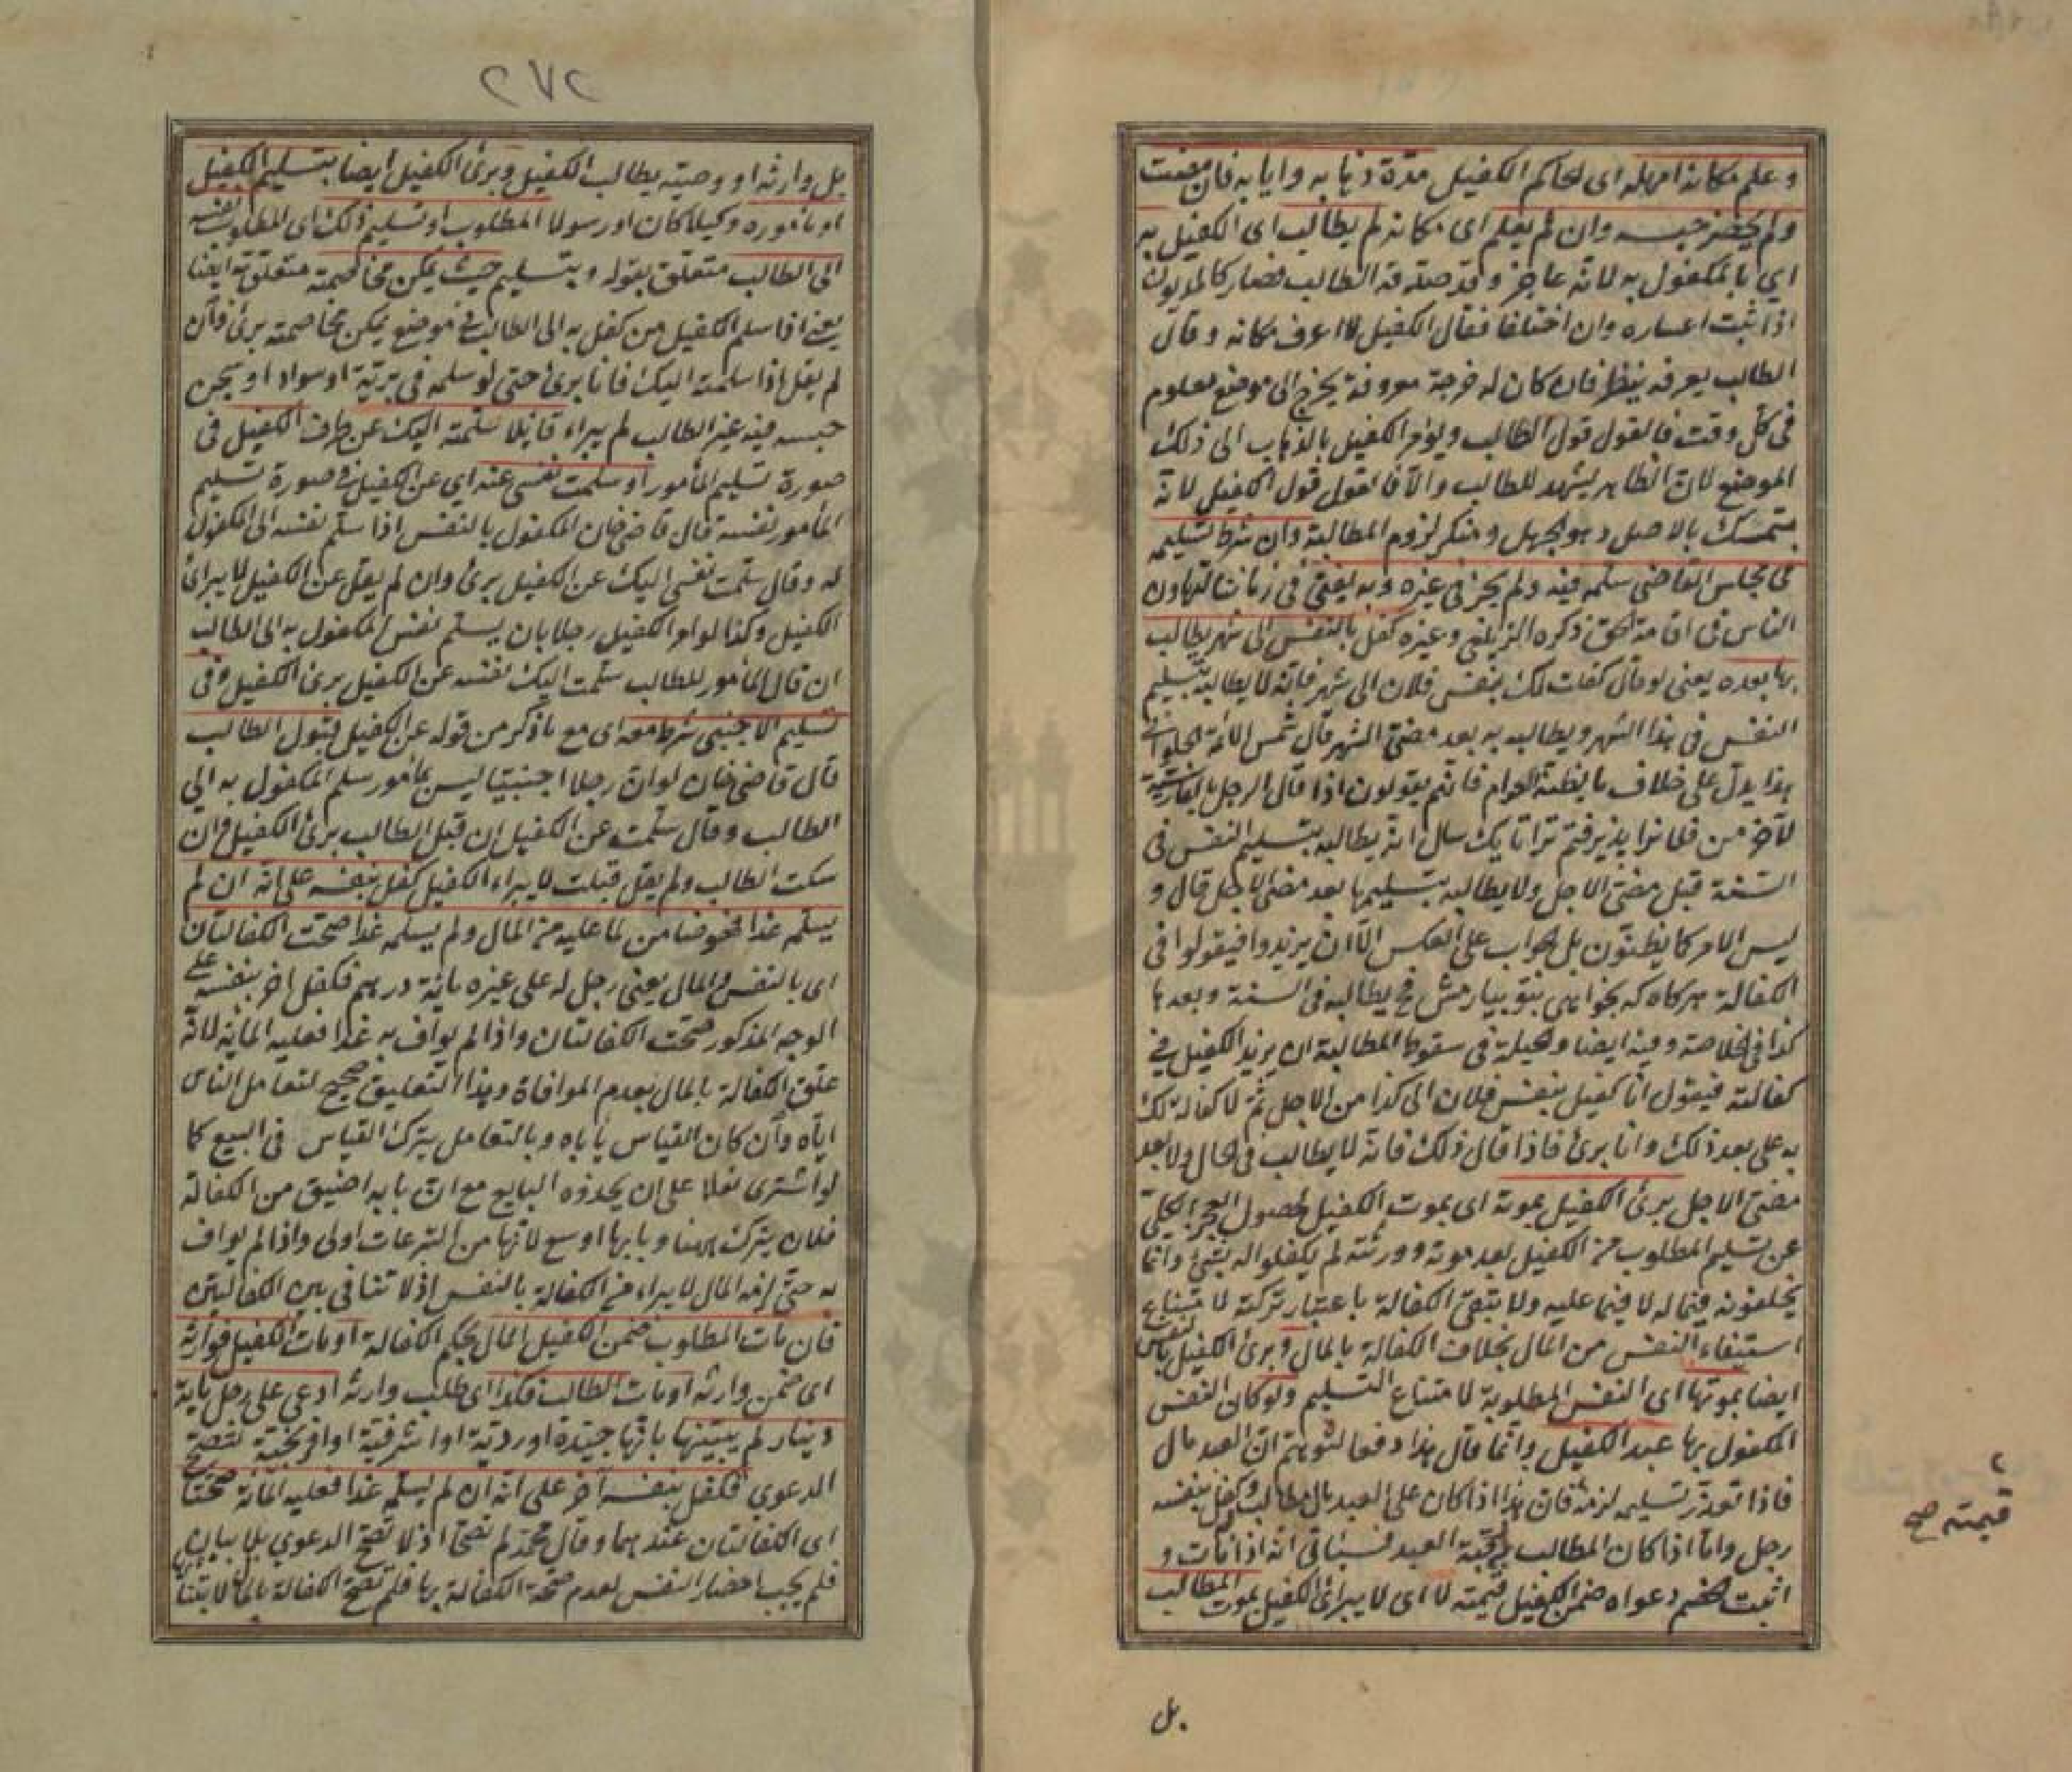 وعلم مكانه امهله اى الحاكم الكفيل مدة ذهابه وايابه فان مضت
ولم يحضر حبسه وان لم يعلم اى مكانه لم يطالب اى الكفيل به
اي بالمكفول به لانه عاجز وقد صدقه الطالب فصار كالمديون
اذا ثبت اعساره وان اختلفا فقال الكفيل لا اعرف مكانه وقال
الطالب يعرفه ينظر فان كان له خرجة معروفة يخرج الى موضع معلوم
فى كل وقت فالقول قول الطالب ويؤمر الكفيل بالذهاب الى ذلك
الموضع لان الظاهر يشهد للطالب والا فالقول قول الكفيل لانه
متمسك بالاصل وهو الجهل ومنكر لزوم المطالبة وان شرط تسليمه
فى مجلس القاضى سلمه فيه ولم يجز فى غيره وبه يفتى فى زماننا لتهاون
الناس فى اقامة الحق ذكره الزيلعى وغيره كفل بالنفس الى شهر يطالب
بها بعده يعنى لو قال كفلت لك بنفس فلان الى شهر فانه لا يطالبه بتسليم
النفس فى هذا الشهر ويطالبه به بعد مضى الشهر قال شمس الائمة الحلوانى
هذا يدل على خلاف ما يظنه العوام فانهم يقولون اذا قال الرجل بالفارسية
لآخر من فلانرا پذيرفتم ترا تا يك سال انه يطالبه بتسليم النفس فى
السنة قبل مضى الاجل ولا يطالبه بتسليمها بعد مضى الاجل قال و
ليس الامر كما يظنون بل الجواب على العكس الا ان يزيدوا فيقولوا فى
الكفالة هركاه كه بخواهى بتو بيارمش فح يطالبه فى السنة وبعدها
كذا فى الخلاصة وفيه ايضا والحيلة فى سقوط المطالبة ان يزيد الكفيل في
كفالته فيقول انا كفيل بنفس فلان الى كذا من الاجل ثم لا كفالة لك
به على بعد ذلك وانا برئ فاذا قال ذلك فانه لا يطالب فى الحال ولا بعد
مضى الاجل برئ الكفيل بموته اى بموت الكفيل لحصول العجز الكلى
عن تسليم المطلوب من الكفيل بعد موته وورثته لم يكفلوا له بشئ وانما
يخلفونه فيما له لا فيما عليه ولا تبقى الكفالة باعتبار تركته لامتناع
استيفاء النفس من المال بخلاف الكفالة بالمال وبرئ الكفيل بالنفس
ايضا بموتها اى النفس المطلوبة لامتناع التسليم ولو كان النفس
المكفول بها عبد الكفيل وانما قال هذا دفعا لتوهم ان العبد مال
فاذا تعذر تسليمه لزمه فان هذا اذا كان على العبد مال مطالب وكفل بنفسه
رجل واما اذا كان المطالب به رقبة العبد فسيأتى انه اذا مات و
اثبت الخصم دعواه ضمن الكفيل قيمته لا اى لا يبرأ الكفيل بموت المطالب
قيمته صح
بل
٢٧٢
بل وارثه او وصيته يطالب الكفيل وبرئ الكفيل ايضا بتسليم الكفيل
او مأموره وكيلا كان او رسولا المطلوب او تسليم ذلك اى المطلوب نفسه
الى الطالب متعلق بقوله وبتسليم حيث يمكن مخاصمته متعلق به ايضا
يعنى اذا سلم الكفيل من كفل به الى الطالب فى موضع يمكن مخاصمته برئ وان
لم يقل اذا سلمته اليك فانا برئ حتى لو سلمه فى برية او سواد او سجن
حبسه فيه غير الطالب لم يبراء قايلا سلمته اليك عن طرف الكفيل فى
صورة تسليم المأمور او سلمت نفسى عنه اي عن الكفيل فى صورة تسليم
المأمور نفسه قال قاضى خان المكفول بالنفس اذا سلم نفسه الى المكفول
له وقال سلمت نفسى اليك عن الكفيل برئ وان لم يقل عن الكفيل لا يبرأ
الكفيل وكذا لو امر الكفيل رجلا بان يسلم نفس المكفول به الى الطالب
ان قال المأمور للطالب سلمت اليك نفسه عن الكفيل برئ الكفيل وفى
تسليم الاجنبى شرط معه اى مع ما ذكر من قوله عن الكفيل قبول الطالب
قال قاضى خان لو ان رجلا اجنبيا ليس بمأمور سلم المكفول به الي
الطالب وقال سلمت عن الكفيل ان قبل الطالب برئ الكفيل وان
سكت الطالب ولم يقل قبلت لا يبراء الكفيل كفل بنفسه على انه ان لم
يسلمه غدا فهو ضامن لما عليه من المال ولم يسلمه غدا صحت الكفالتان
اى بالنفس والمال يعنى رجل له على غيره مائة درهم فكفل اخر بنفسه على
الوجه المذكور صحت الكفالتان واذا لم يواف به غدا فعليه المائة لانه
علق الكفالة بالمال بعدم الموافاة وهذا التعليق صحيح لتعامل الناس
اياه وان كان القياس يأباه وبالتعامل يترك القياس فى البيع كما
لو اشترى نعلا على ان يحذوه البايع مع ان بابه اضيق من الكفالة
فلان يترك ههنا وبابها اوسع لانها من التبرعات اولى واذا لم يواف
به حتى لزمه المال لا يبراء من الكفالة بالنفس اذ لا تنافى بين الكفالتين
فان مات المطلوب ضمن الكفيل المال بحكم الكفالة او مات الكفيل فوارثه
اى ضمن وارثه او مات الطالب فكذا اى طلب وارثه ادعى على رجل مأية
دينار لم يبينها بانها جيدة او ردية او اشرفية او افرنجية لتصح
الدعوي فكفل بنفسه آخر على انه ان لم يسلمه غدا فعليه المائة صحتا
اى الكفالتان عندهما وقال محمد لم تصحا اذ لا تصح الدعوي بلا بيان
فلم يجب احضار النفس لعدم صحة الكفالة بها فلم تصح الكفالة بالمال